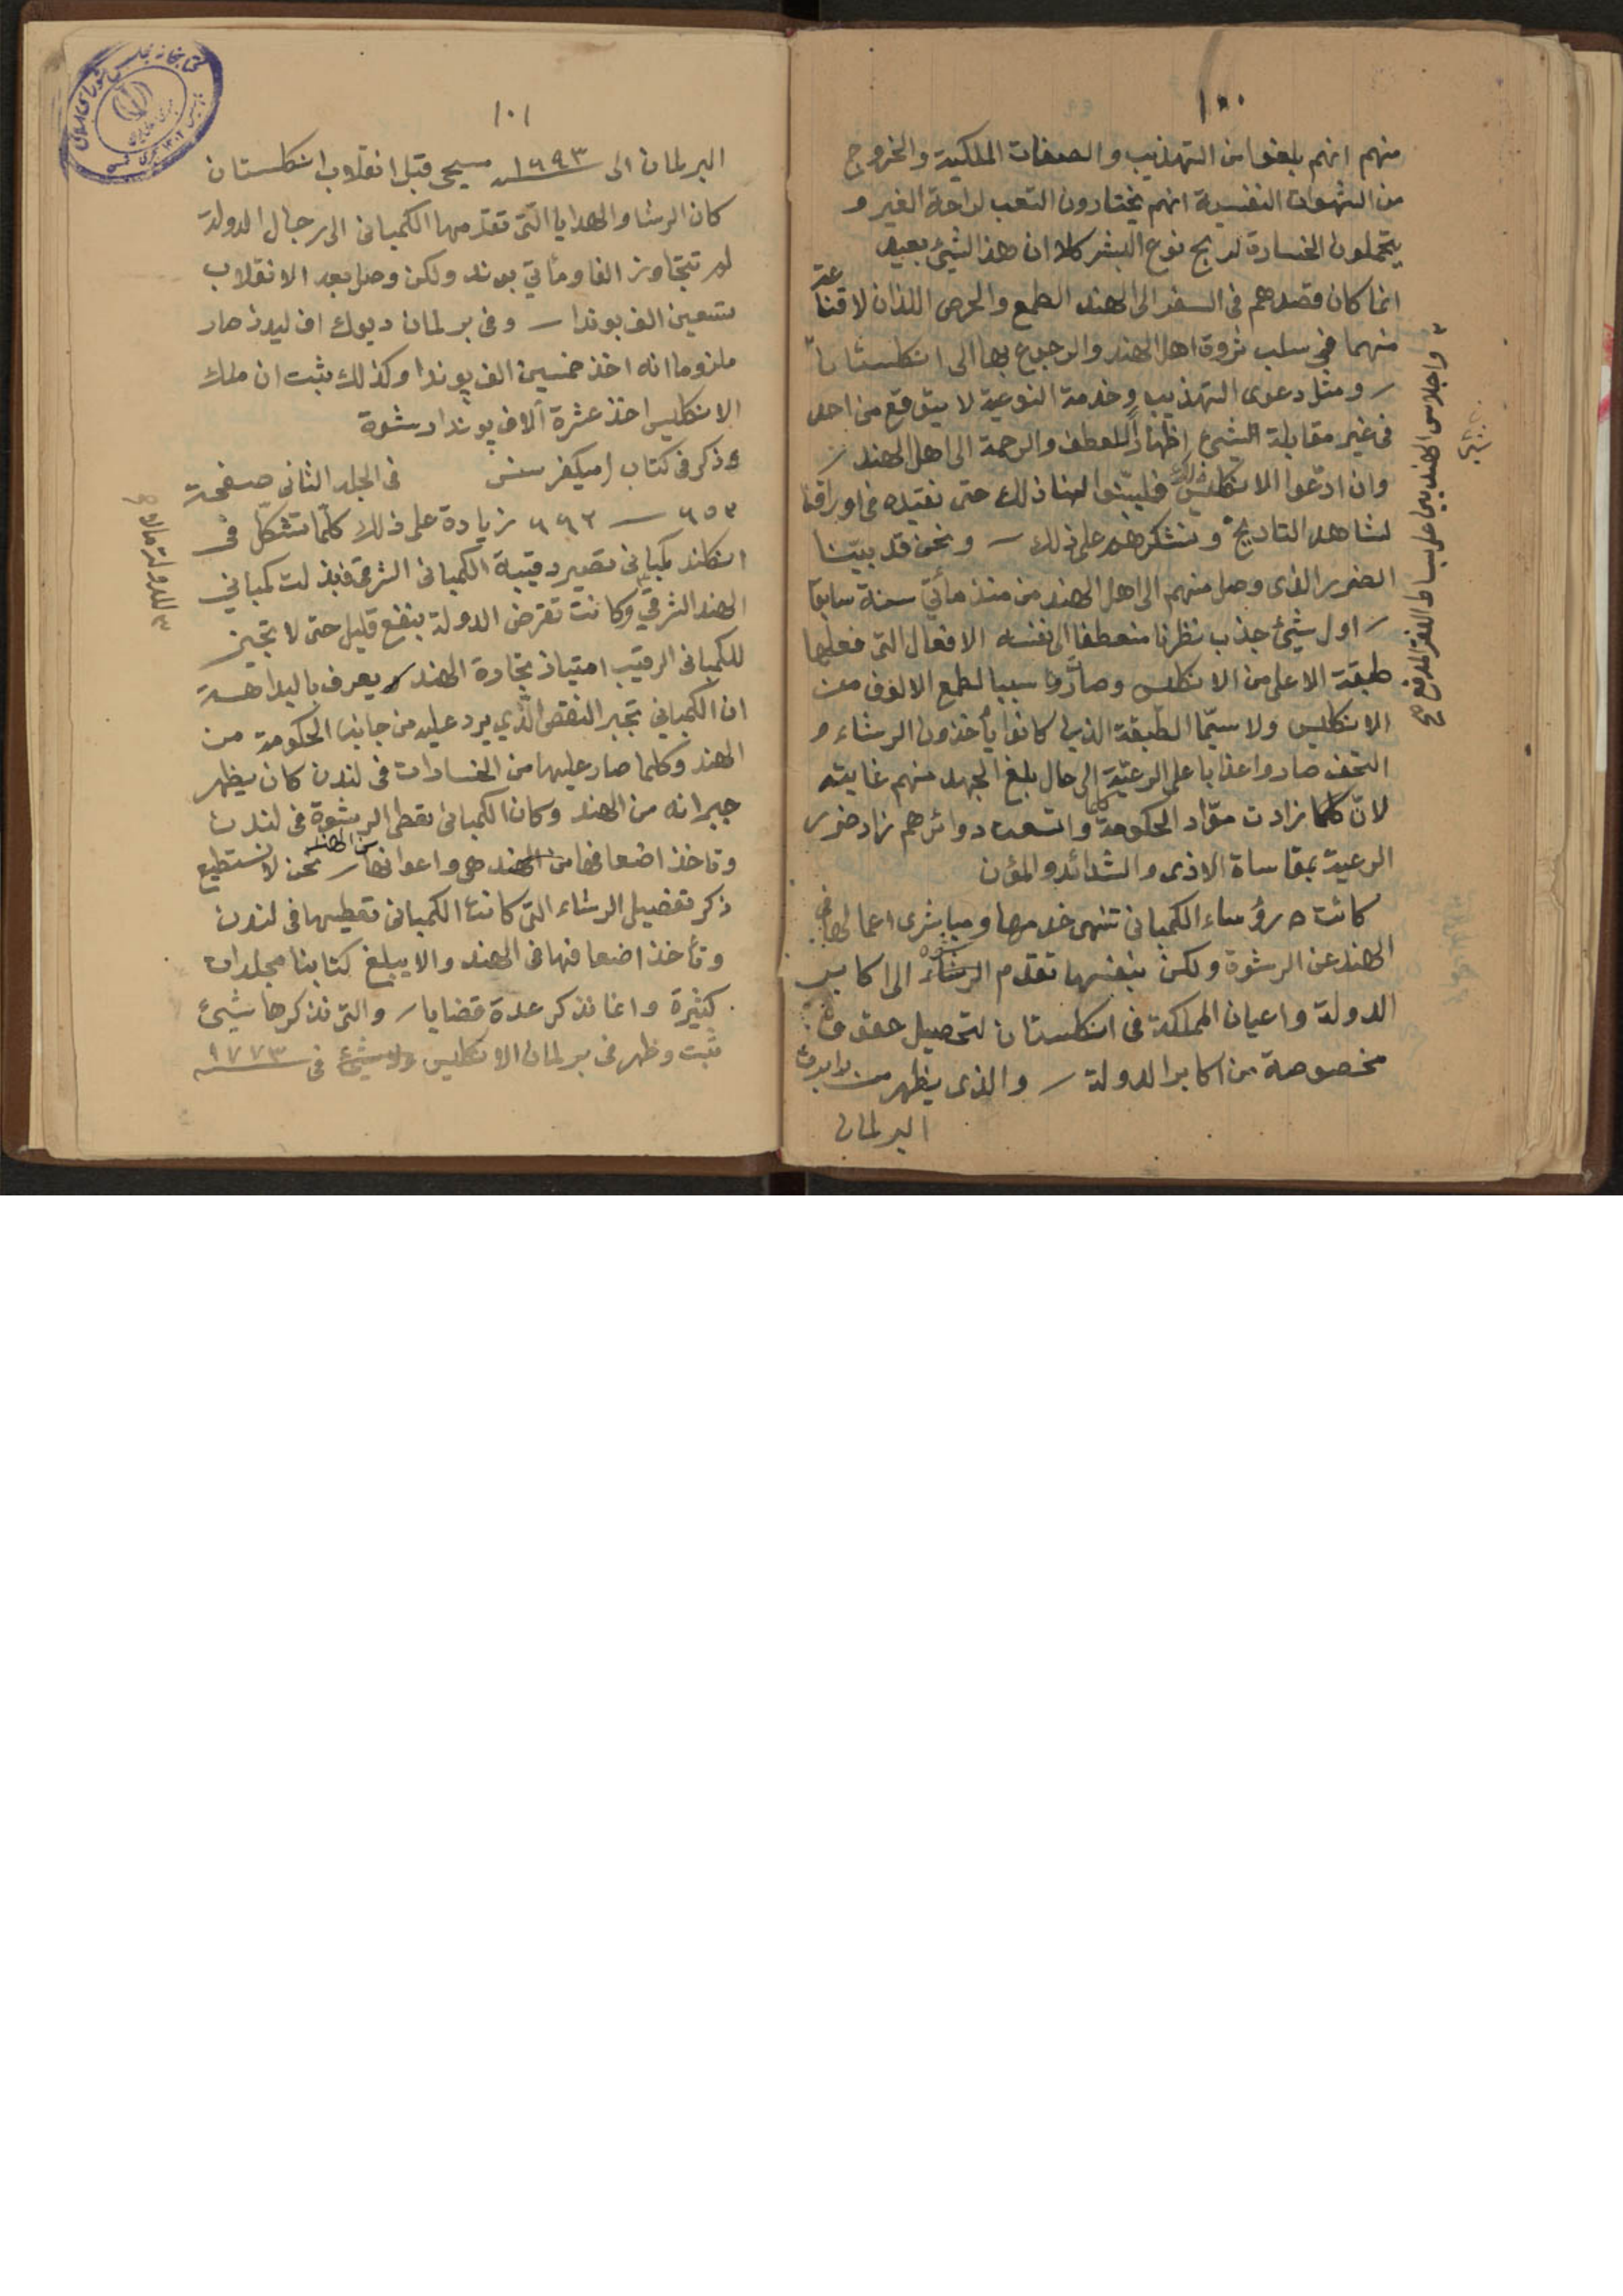 ١٠٠
منهم انهم بلغوا من التهذيب والصفات الملكية والخروج
من الشهوات النفسية انهم يختارون التعب لراحة الغير و
يتحملون الخسارة لربح نوع البشر كلا ان هذا لشيئ بعيد
انما كان قصدهم فى السفر الى الهند الطمع والحرص اللذان لا قناعة
منهما في سلب ثروة اهل الهند والرجوع بها الى انكلستان
ومثل دعوى التهذيب وخدمة النوعية لا يتوقع من احد
فى غير مقابلة الشيئ اظهاراً للعطف والرحمة الى اهل الهند
وان ادّعوا الانكليس ذلك فليبيّنوا لنا ذلك حتى نقيده فى اوراقنا
لشاهد التاريخ ونتشكرهم على ذلك ونحن قد بيّنا
الضرر الذى وصل منهم الى اهل الهند من منذ مأتي سنة سابقا
اول شيئ جذب نظرنا منعطفا الى نفسه الافعال التى فعلها
طبقة الاعلى من الانكليس وصاروا سببا لطمع الالوف من
الانكليس ولا سيّما الطبقة الذين كانوا يأخذون الرشاء و
التحف صاروا عذابا على الرعيّة الى حال بلغ الجهد منهم غايته
لانّ كلما زادت موّاد الحكومة وكلما اتسعت دوائرهم زاد ضرر
الرعية بمقاساة الاذى والشدائد والمؤن
كانت رؤساء الكمبانى تنهى خدمها ومباشرى اعمالها فى
الهند عن الرشوة ولكن بنفسها تقدم الرشوة الى اكابر
الدولة واعيان المملكة فى انكلستان لتحصيل حقوق
مخصوصة من اكابر الدولة والذى يظهر من
البرلمان
واجلاس الهنديين على بساط الفقر المدقع صح
١٠١
البرلمان الى ١٦٩٣ مسيحى قبل انقلاب انكلستان
كان الرشا والهدايا الّتى تقدّمها الكمبانى الى رجال الدولة
لم تتجاوز الفا ومأتي بوند ولكن وصل بعد الانقلاب
تسعين الف بوندا وفى برلمان ديوك اف ليدز صار
ملزوما انه اخذ خمسين الف پوندا وكذلك يثبت ان ملك
الانكليس اخذ عشرة آلاف پوندا رشوة
وذكر فى كتاب فى الجلد الثانى صفحة
٦٥٣ — ٦٦٢ زيادة على ذلك كلّما تشكّل فى
انكلند كمبانى تصير رقيبة الكمبانى الشرقى فبذلت كمباني
الهند الشرقي وكانت تقرض الدولة بنفع قليل حتى لا تجيز
للكمبانى الرقيب امتياز تجارة الهند ويعرف بالبداهة
ان الكمباني تجبر النقص الّذي يرد عليه من جانب الحكومة من
الهند وكلما صار عليها من الخسارات فى لندن كان يظهر
جبرانه من الهند وكان الكمبانى تعطى الرشوة فى لندن
وتاخذ اضعافها من الهند هى واعوانها نحن لا نستطيع
ذكر تفضيل الرشاء التى كانت الكمبانى تعطيها فى لندن
وتأخذ اضعافها فى الهند والا يبلغ كتابنا مجلدات
كثيرة وانما نذكر عدة قضايا والتى نذكرها شيئ
ثبت وظهر فى برلمان الانكليس فى ١٧٧٣